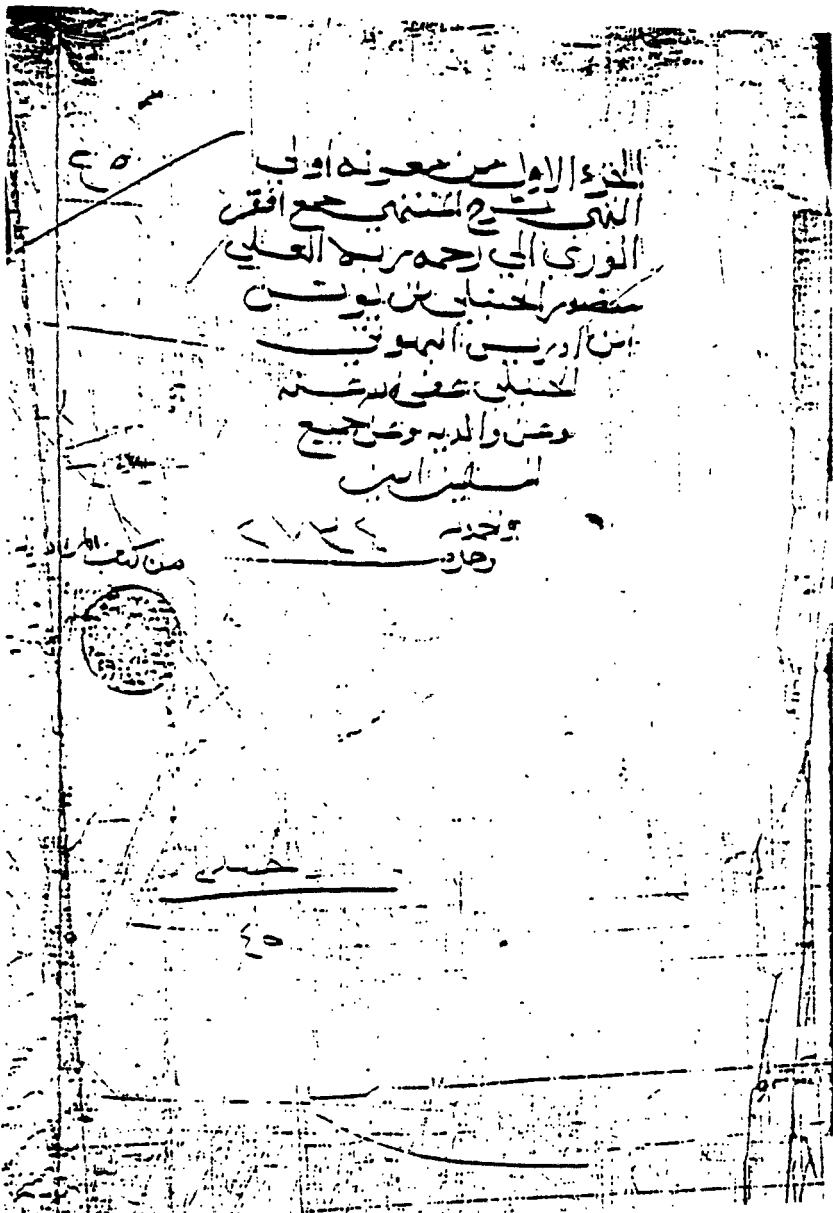 الجزء الاول من معونة اولي
النهى بشرح المنتهى جمع افقر
الورى الى رحمة ربه العلي
منصور الحنبلي بن يونس
ابن ادريس البهوتي
الحنبلي عفى الله عنه
وعن والديه وعن جميع
المسلمين امين
من كتب
حنبلي
٤٥